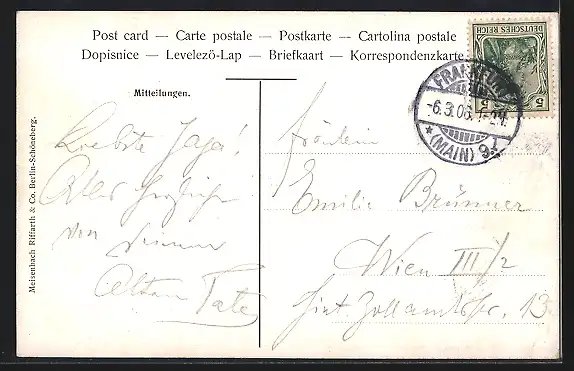 Post card — Carte postale — Postkarte — Cartolina postale
Dopisnice — Levelezö-Lap — Briefkaart — Korrespondenzkarte
DEUTSCHES REICH
5 5
FRANKFURT
-6.3.06.
*(MAIN) 9
Mitteilungen.
Meisenbach Riffarth & Co. Berlin-Schöneberg.
Liebste
Alles herzliche
von deinem
Alten
Fräulein
Emilie Brünner
Wien III/2
Hint. Zollamtsstr. 13